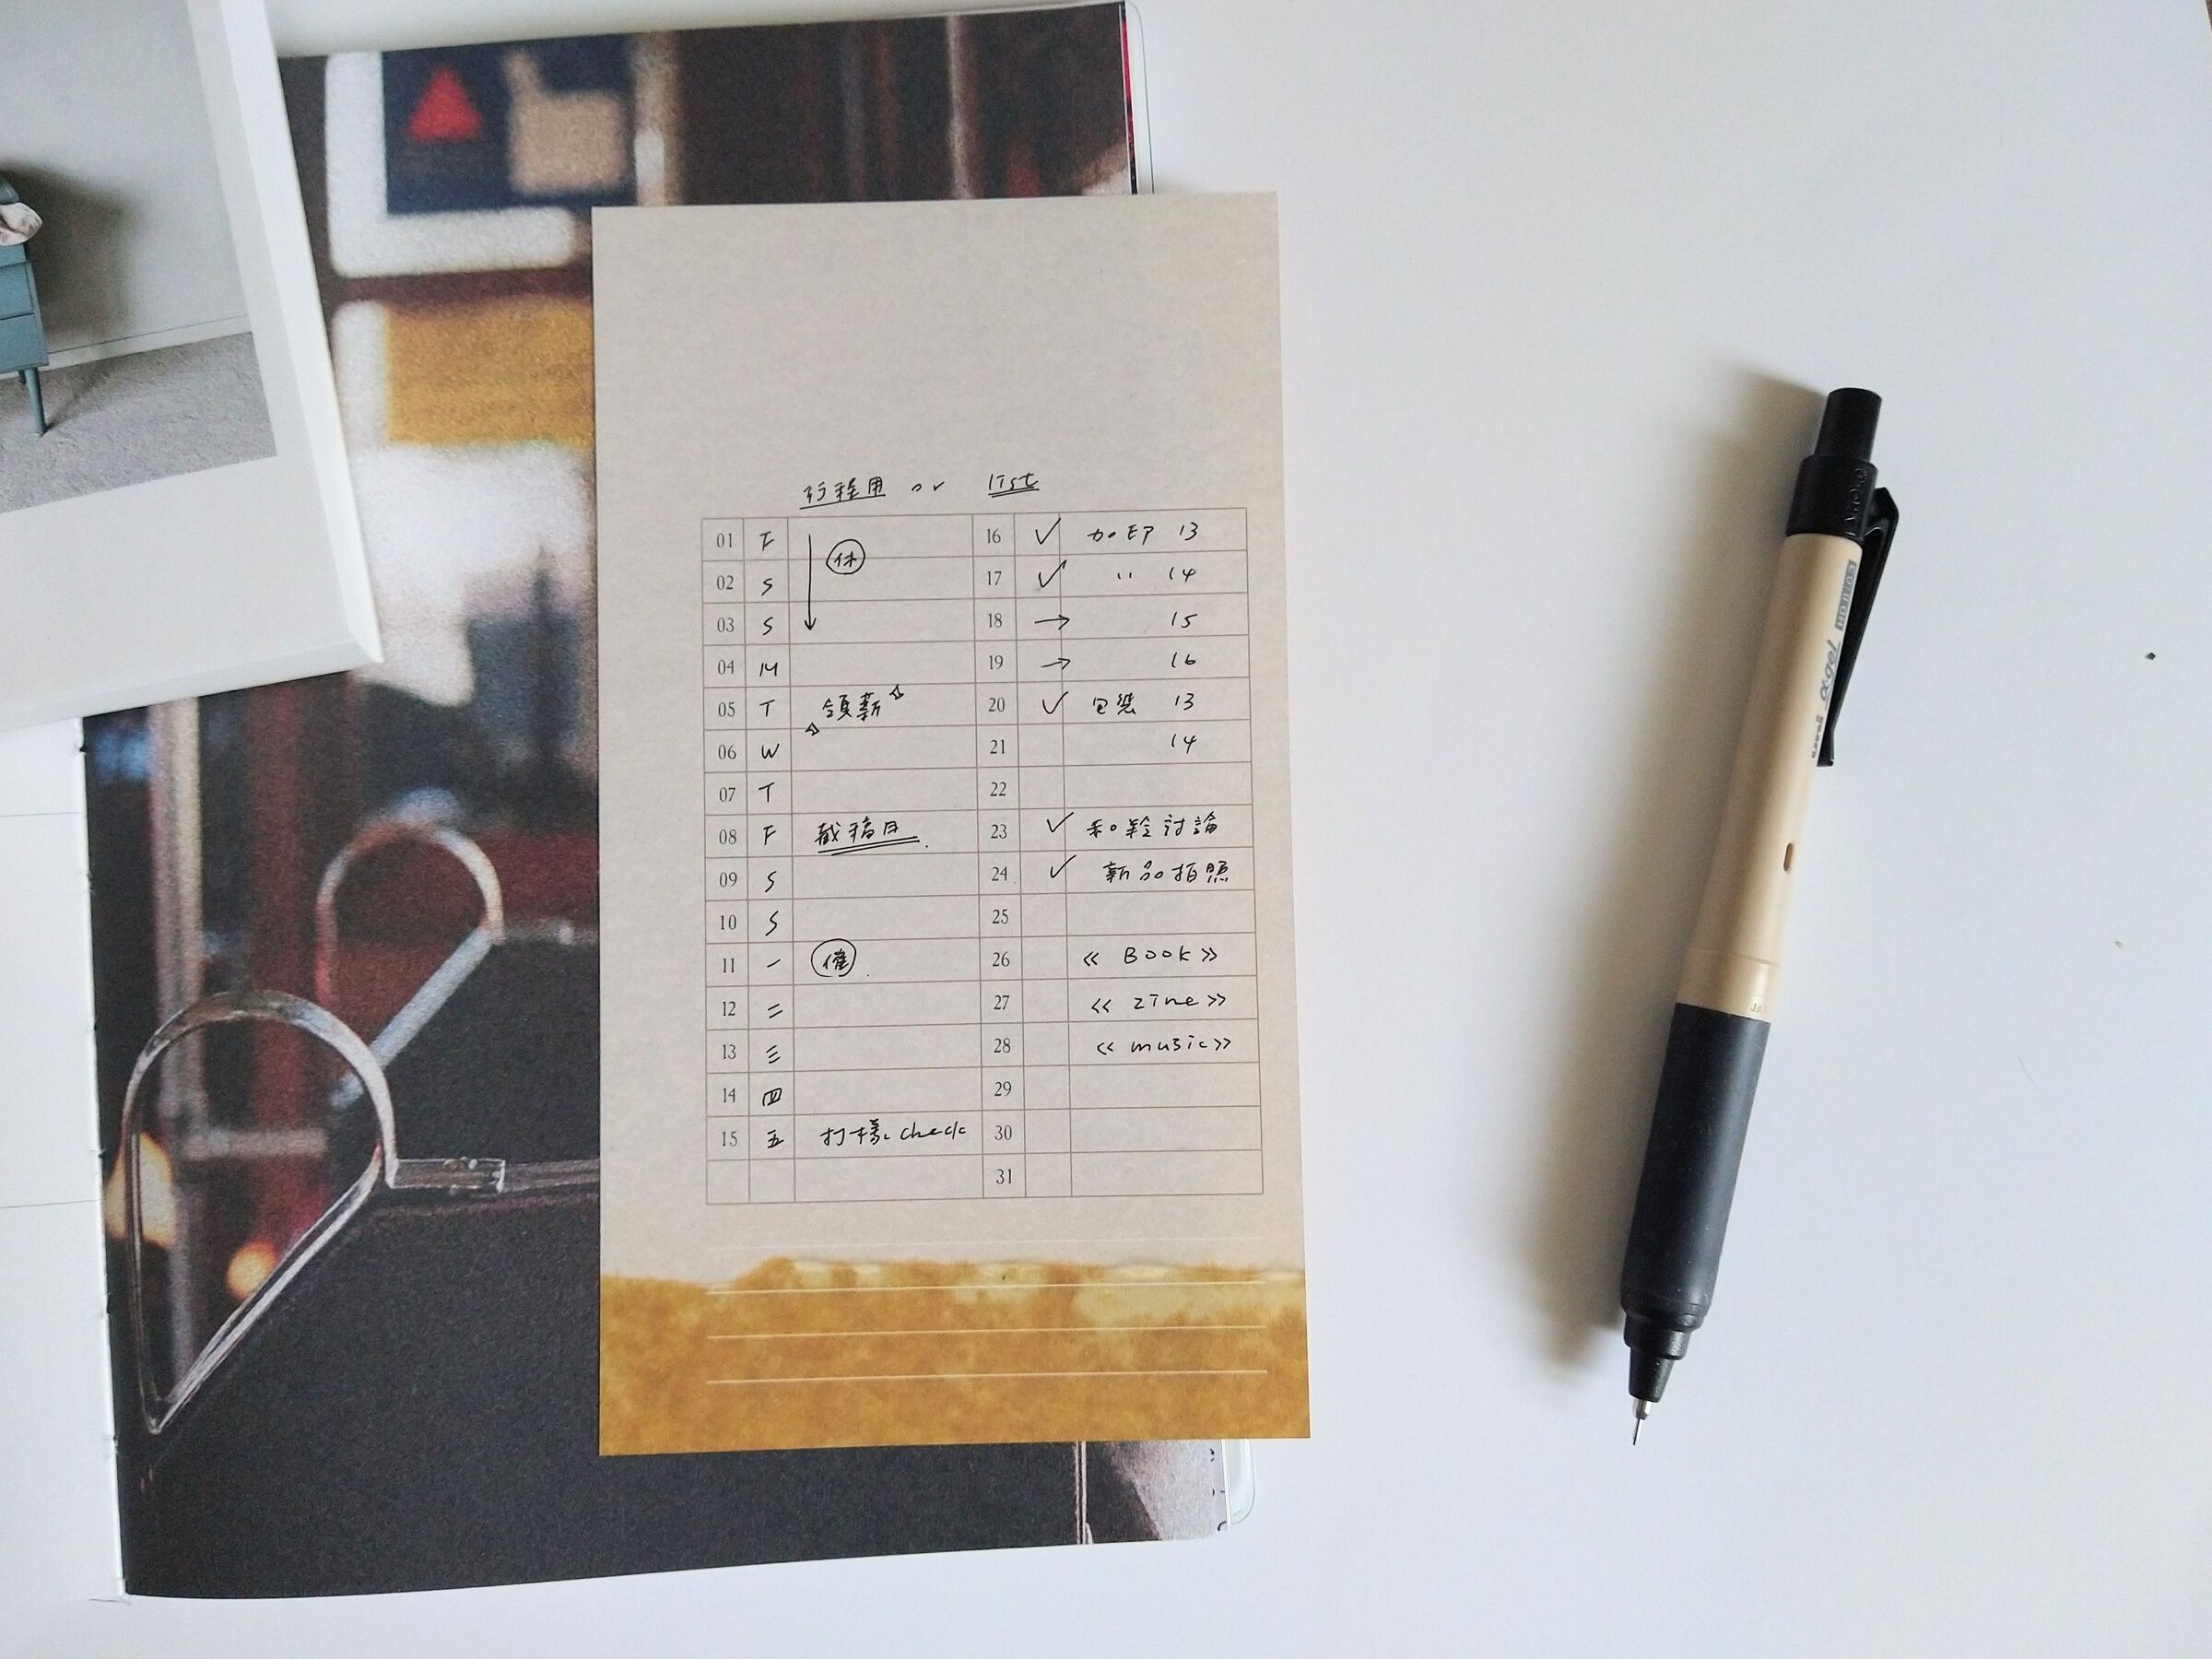 行程用 or list
01 F 休
02 S
03 S
04 M
05 T 領薪
06 W
07 T
08 F 截稿日.
09 S
10 S
11 一 催.
12 二
13 三
14 四
15 五 打樣check
16 ✓ 加印 13
17 ✓ " 14
18 → 15
19 → 16
20 ✓ 包裝 13
21 14
22
23 ✓ 和 討論
24 ✓ 新品拍照
25
26 《 Book 》
27 《 zine 》
28 《 music 》
29
30
31